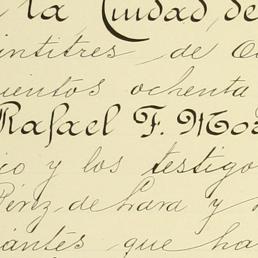 la Ciudad, de
veintitres de Oc
cientos ochenta
Rafael F. Mo
io y los testigo
Pérez de Lara y
antes que ha